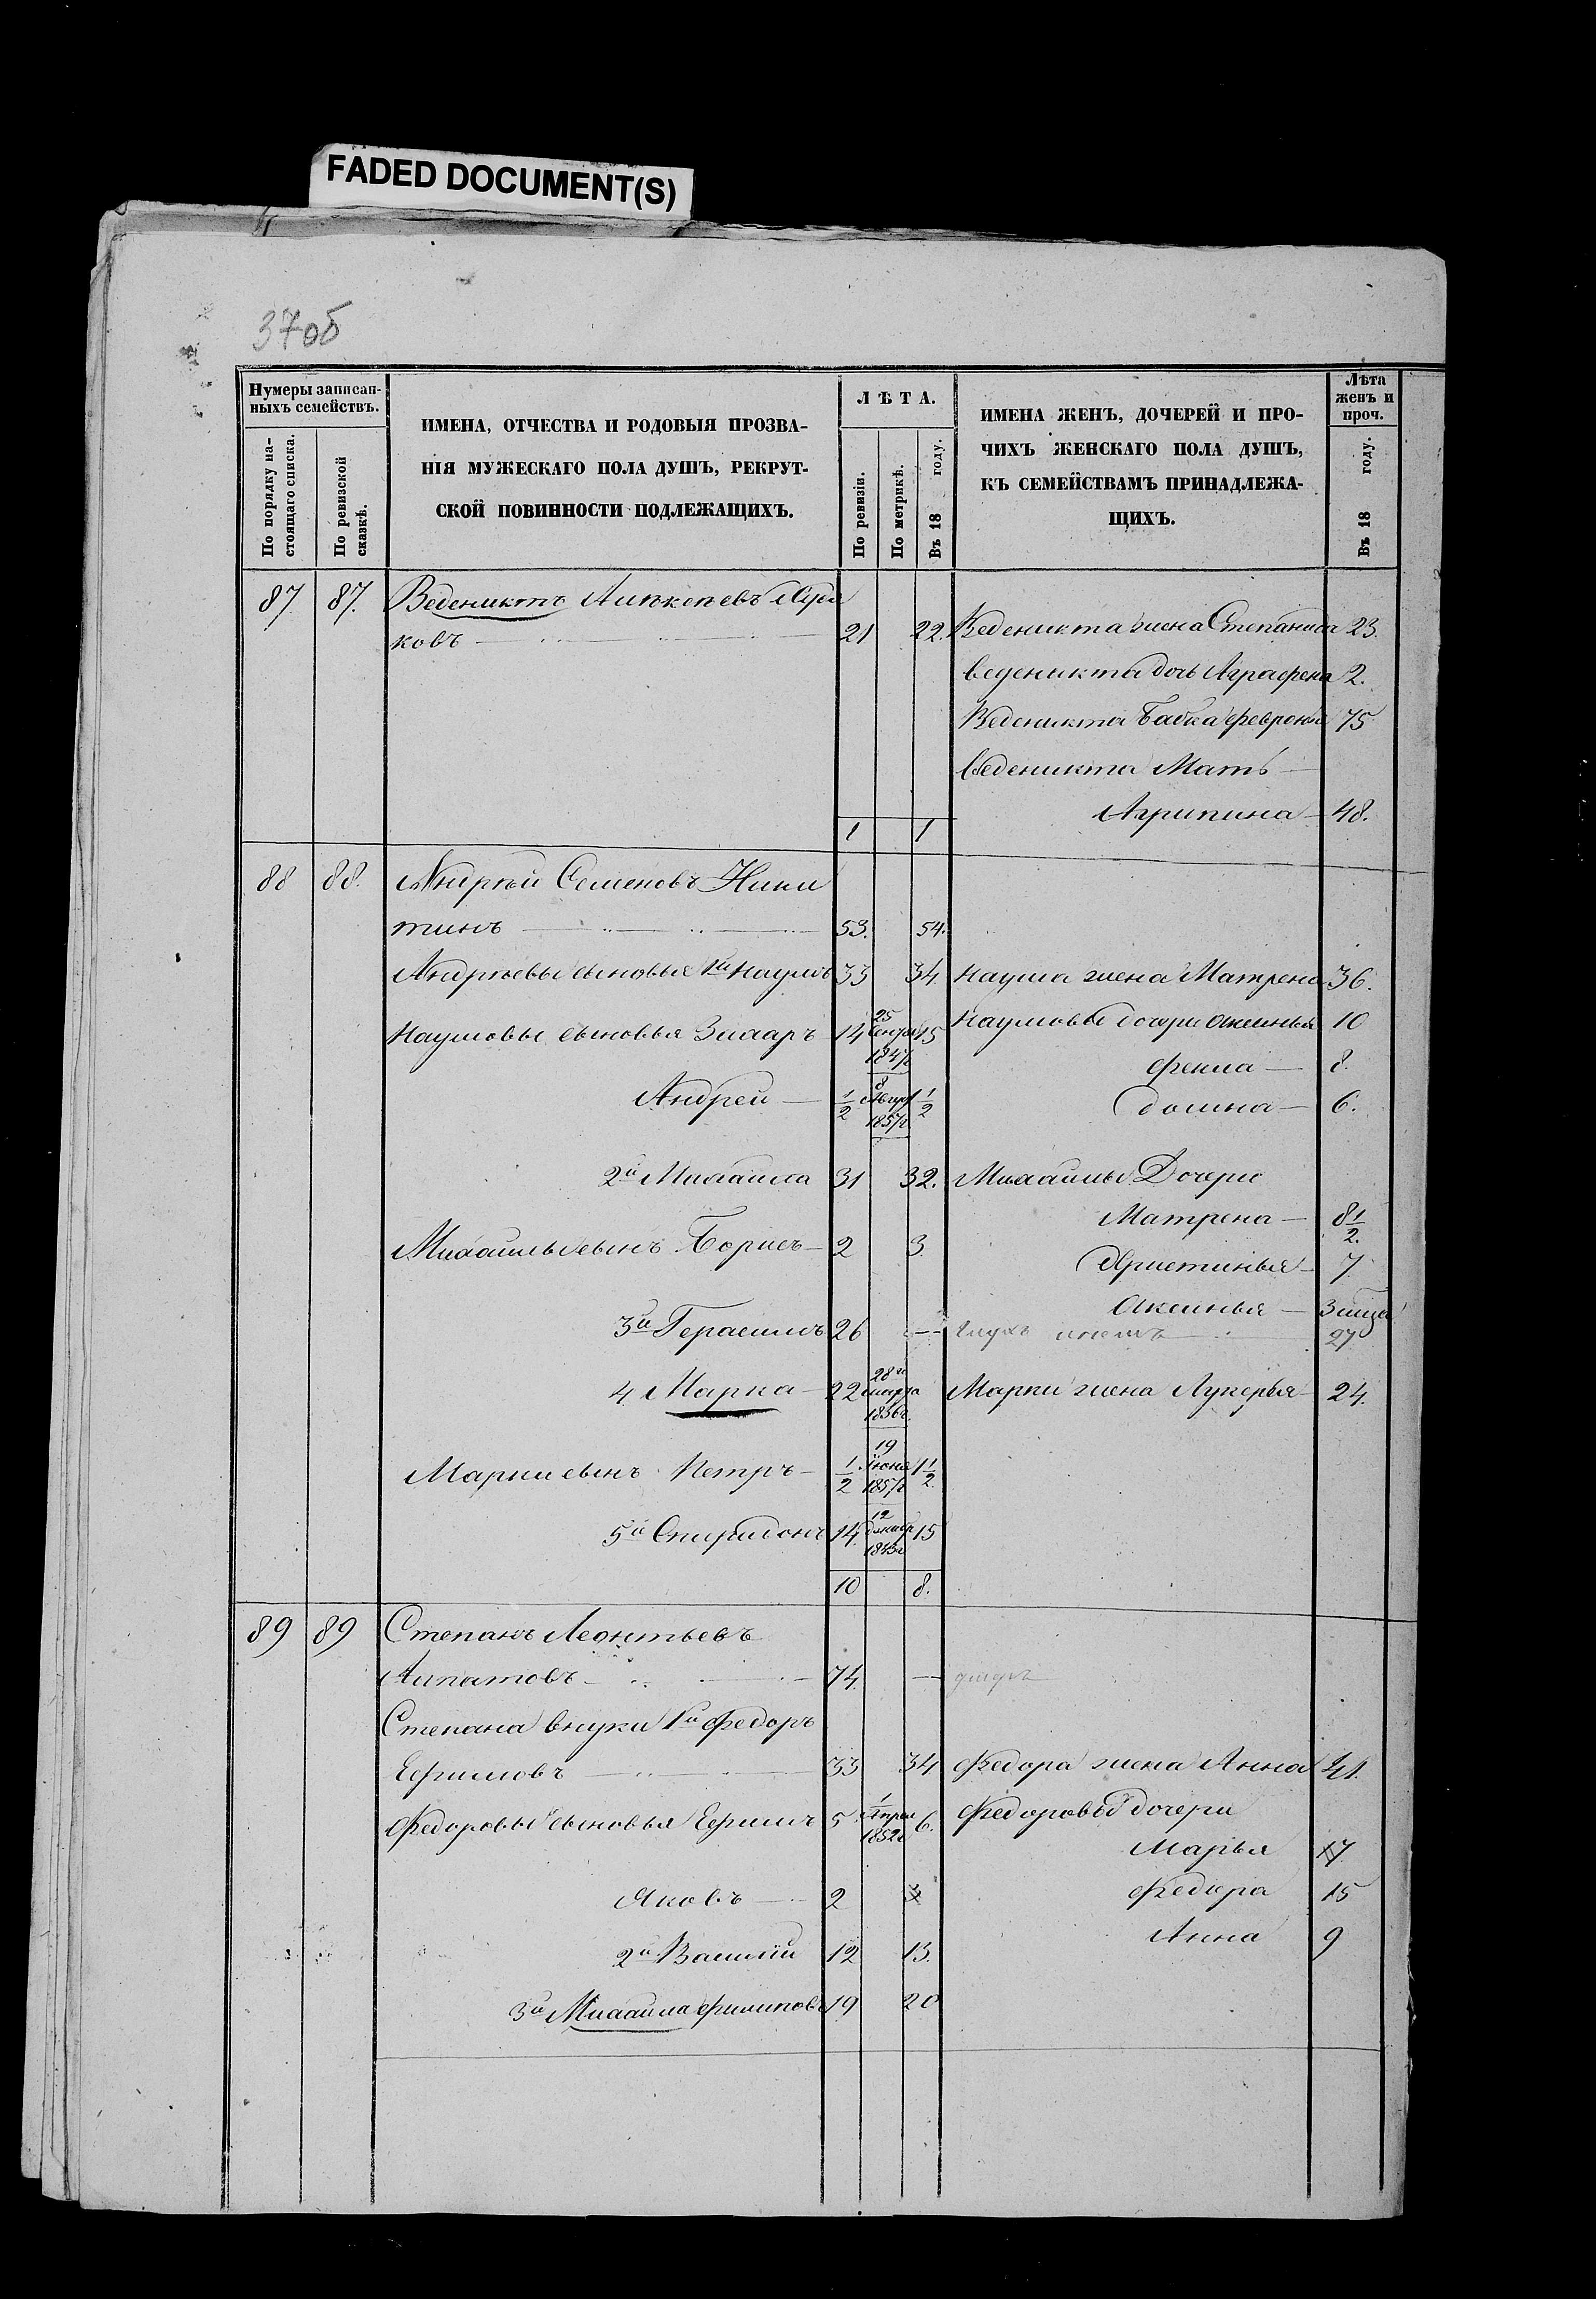 FADED DOCUMENT(S)
37об
Нумеры записан-
ныхъ семействъ.
По порядку на-
стоящаго списка.
По ревизской
сказкѣ.
ИМЕНА, ОТЧЕСТВА И РОДОВЫЯ ПРОЗВА-
НІЯ МУЖЕСКАГО ПОЛА ДУШЪ, РЕКРУТ-
СКОЙ ПОВИННОСТИ ПОДЛЕЖАЩИХЪ.
ЛѢТА.
По ревизіи.
По метрикѣ.
Въ 18 году.
ИМЕНА ЖЕНЪ, ДОЧЕРЕЙ И ПРО-
ЧИХЪ ЖЕНСКАГО ПОЛА ДУШЪ,
КЪ СЕМЕЙСТВАМЪ ПРИНАДЛЕЖА-
ЩИХЪ.
Лѣта
женъ и
проч.
Въ 18 году.
87 87. Ведениктъ
ковъ 21 22. Веденикта жена Степанида 23.
веденикта дочь Аграфена 2.
Веденикта Бабка феврония 75
веденикта Мать
Агрипина 48.
1 1
88 88. Андрѣй Семеновъ Ники
тинъ 53. 54.
Андрѣевы сыновья 1й Наумъ 33 34. Наума жена Матрена 36.
Наумовы сыновья Захаръ 14 25 1847г 15 Наумовы дочери Аксинья 10
фекла 8.
Андрей 1/2 8 1857г 1 1/2 домна 6.
2й Михайла 31 32. Михайлы Дочери
Матрена 8 1/2.
Михайлы сынъ Борисъ 2 3.
Христинья 7
Аксинья
3й Герасимъ 26 — 27
4 Марка 22 28го марта 1836г. Марки жена Лукерья 24.
Марки сынъ Петръ 1/2 19 Июня 1857г 1 1/2.
5й Спиридонъ 14. 12 декабр 1843г 15
10 8.
89 89 Степанъ Леонтьевъ
Липатовъ 74. — умеръ
Степана внуки 1й Федоръ
Ефимовъ 33 34 Федора жена Анна 41.
Федоровы сыновья Ефимъ 5 1 Апрел 1852г 6. Федоровы дочери
Марья 17
Яковъ 2 3 Федора 15
Анна 9
2й Василій 12 13.
3й Михайла филиповъ 19 20